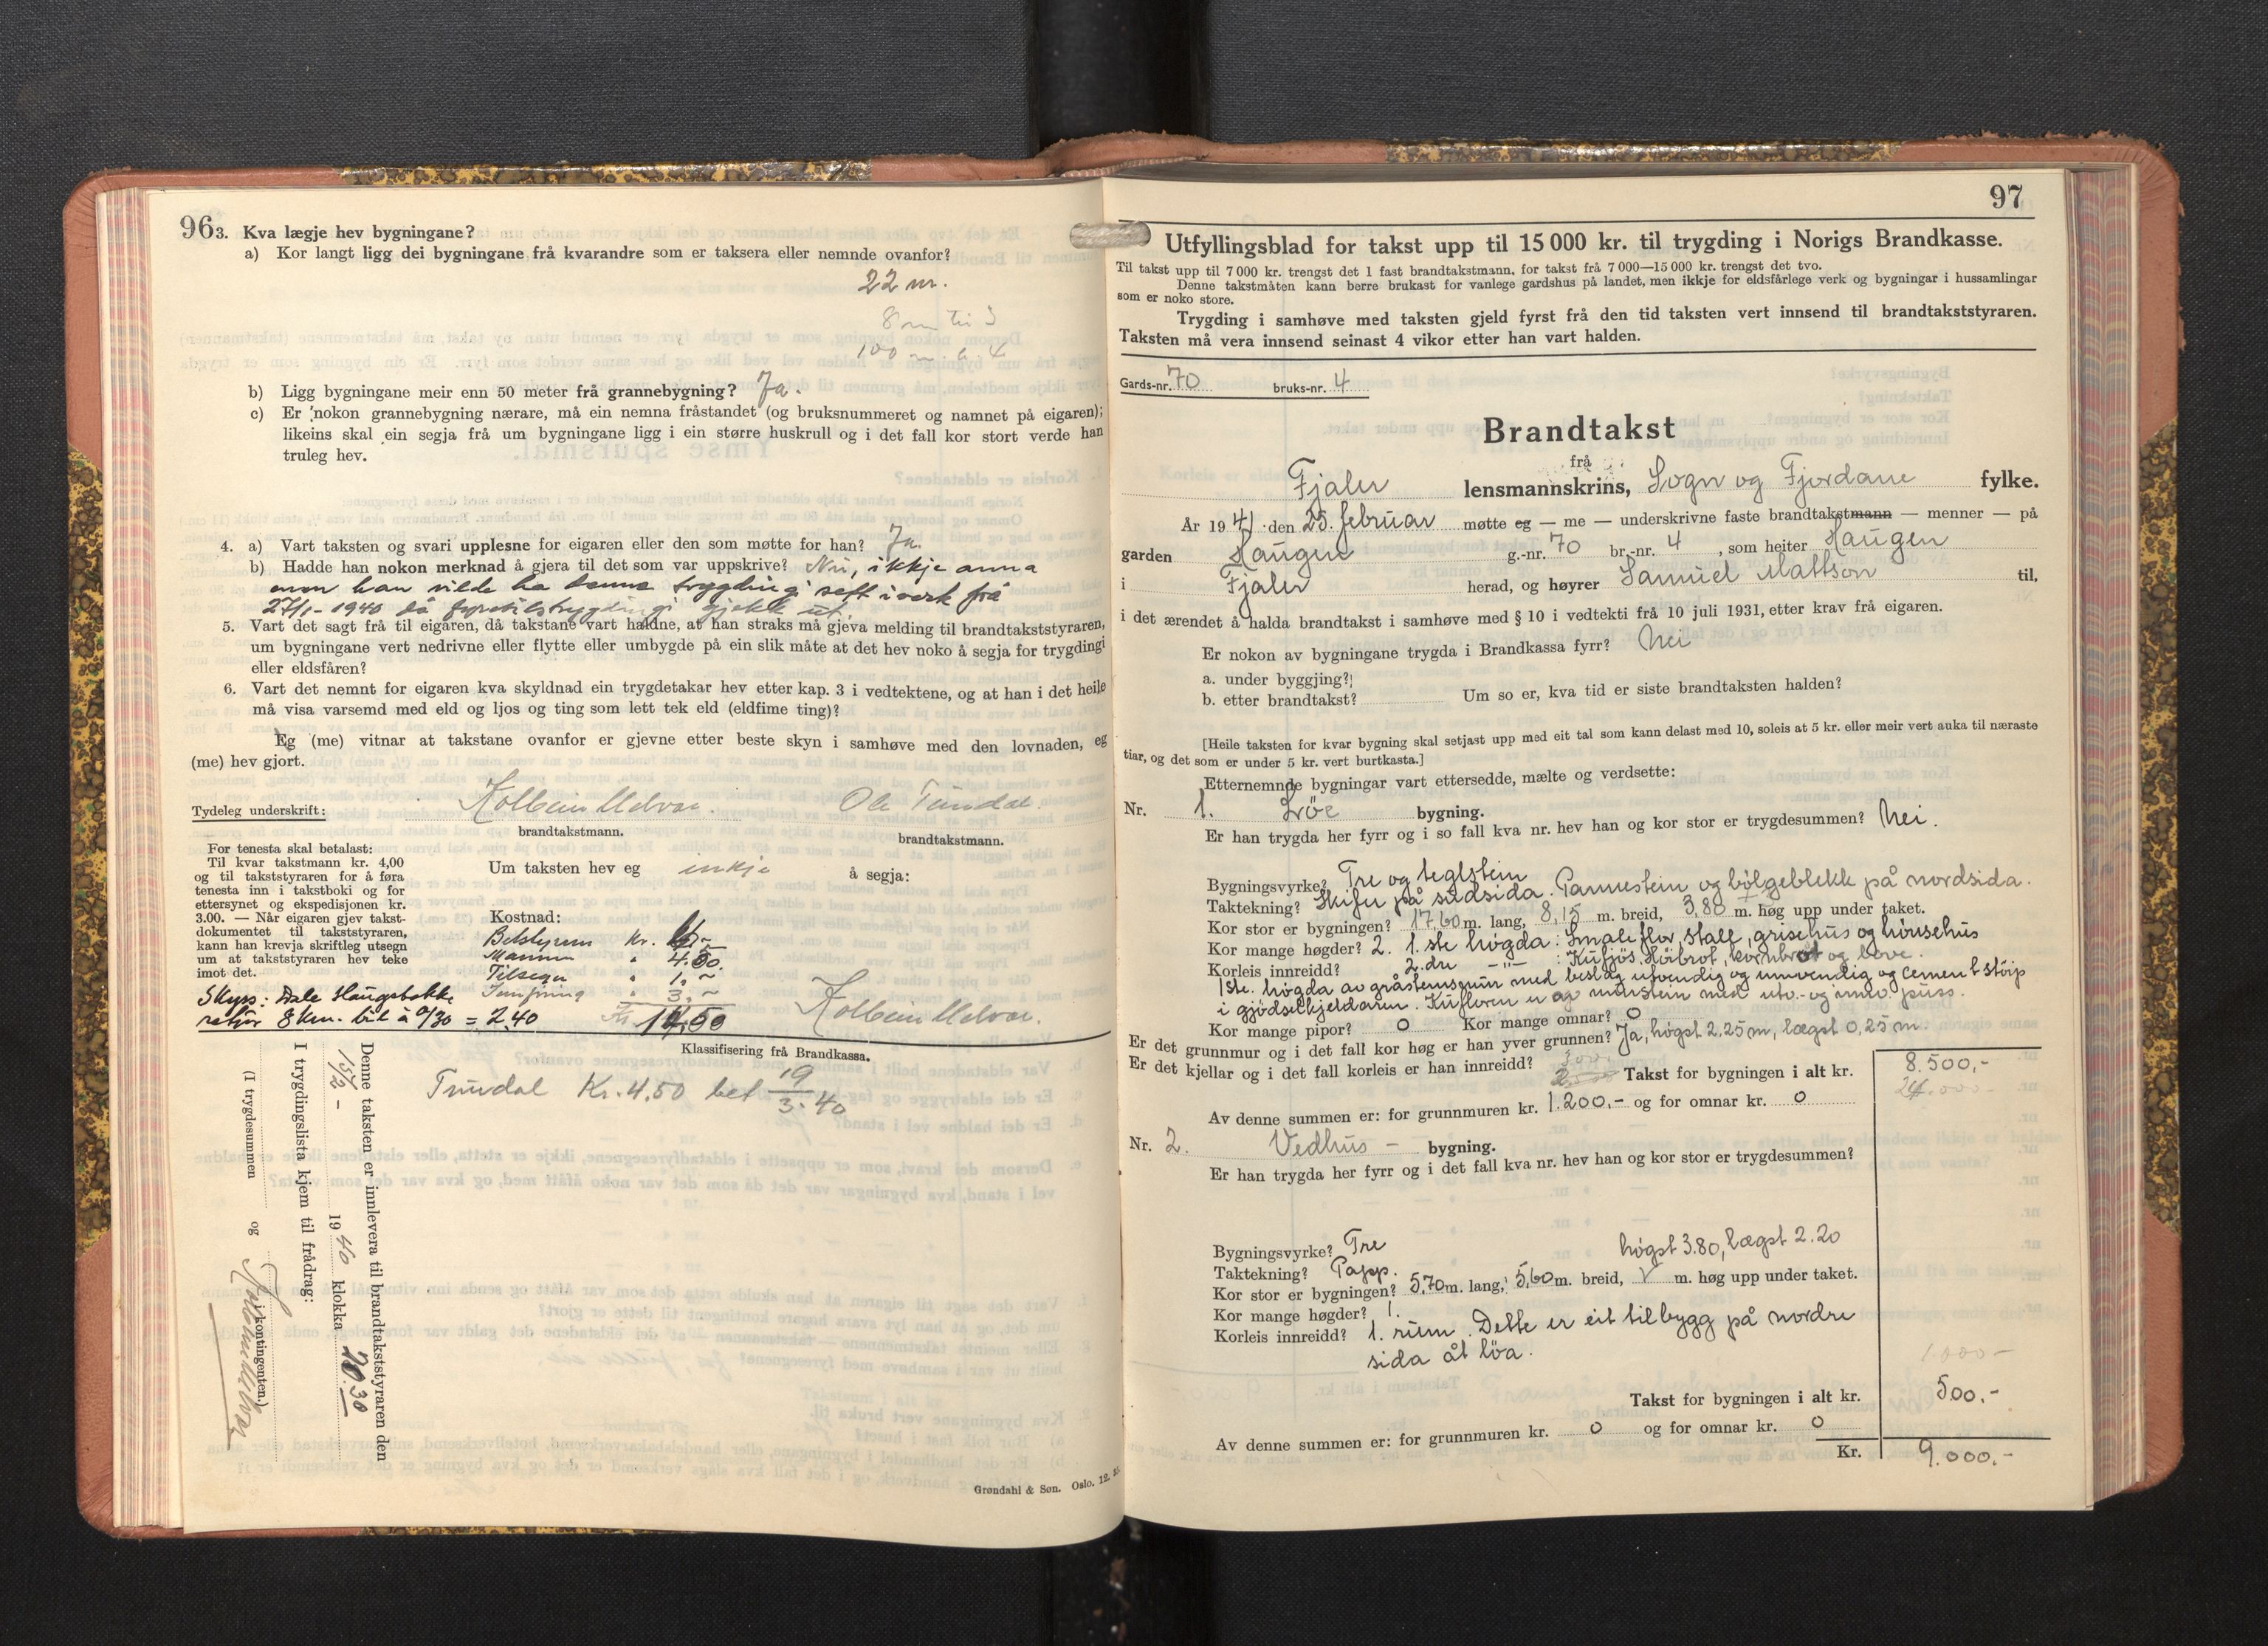 96
3. Kva lægje hev bygningane?
a) Kor langt ligg dei bygningane frå kvarandre som er taksera eller nemnde ovanfor?
22 m.
8 m til 3
100 m. 4
b) Ligg bygningane meir enn 50 meter frå grannebygning? Ja.
c) Er nokon grannebygning nærare, må ein nemna fråstandet (og bruksnummeret og namnet på eigaren);
likeins skal ein segja frå um bygningane ligg i ein større huskrull og i det fall kor stort verde han
truleg hev.
4. a) Vart taksten og svari upplesne for eigaren eller den som møtte for han? Ja.
b) Hadde han nokon merknad å gjera til det som var uppskrive? Nei, ikkje anna
enn han vilde ha denne trygdingi sett i verk frå
27/1-1940 då fyretilstrygdingi gjekk ut.
5. Vart det sagt frå til eigaren, då takstane vart haldne, at han straks må gjeva melding til brandtakststyraren,
um bygningane vert nedrivne eller flytte eller umbygde på ein slik måte at det hev noko å segja for trygdingi
eller eldsfåren?
6. Vart det nemnt for eigaren kva skyldnad ein trygdetakar hev etter kap. 3 i vedtektene, og at han i det heile
må visa varsemd med eld og ljos og ting som lett tek eld (eldfime ting)?
Eg (me) vitnar at takstane ovanfor er gjevne etter beste skyn i samhøve med den lovnaden, eg
(me) hev gjort.
Tydeleg underskrift: Kolbein Udvar. Ole Tundal
brandtakstmann. brandtakstmann.
For tenesta skal betalast:
Til kvar takstmann kr. 4,00
og til takststyraren for å føra
tenesta inn i takstboki og for
ettersynet og ekspedisjonen kr.
3.00. — Når eigaren gjev takst-
dokumentet til takststyraren,
kann han krevja skriftleg utsegn
um at takststyraren hev teke
imot det.
Um taksten hev eg inkje å segja:
Kostnad:
Betstyrem Kr.
Mannen " 4.50.
Tilsegn " 1.-
" 3.-
Skyss: Dale Haugsbakke
retur 8 km. bil à 0/30 = 2.40
Kr. 14,50
Kolbein Udvar.
Klassifisering frå Brandkassa.
Tundal Kr. 4.50 bet 19/3-40
Denne taksten er innlevera til brandtakststyraren den
15/2 - 1940 klokka 20.30
I trygdingslista kjem til frådrag:
(I trygdesummen og i kontingenten)
Kolbein Udvar
Grøndahl & Søn. Oslo. 12.
97
Utfyllingsblad for takst upp til 15 000 kr. til trygding i Norigs Brandkasse.
Til takst upp til 7 000 kr. trengst det 1 fast brandtakstmann, for takst frå 7 000—15 000 kr. trengst det tvo.
Denne takstmåten kann berre brukast for vanlege gardshus på landet, men ikkje for eldsfårlege verk og bygningar i hussamlingar
som er noko store.
Trygding i samhøve med taksten gjeld fyrst frå den tid taksten vert innsend til brandtakststyraren.
Taksten må vera innsend seinast 4 vikor etter han vart halden.
Gards-nr. 70 bruks-nr. 4
Brandtakst
frå
Fjaler lensmannskrins, Sogn og Fjordane fylke.
År 1941 den 25. februar møtte eg — me — underskrivne faste brandtakstmann — menner — på
garden Haugen g.-nr. 70 br.-nr. 4, som heiter Haugen
i Fjaler herad, og høyrer Samuel Mattson til,
i det ærendet å halda brandtakst i samhøve med § 10 i vedtekti frå 10 juli 1931, etter krav frå eigaren.
Er nokon av bygningane trygda i Brandkassa fyrr? Nei
a. under byggjing?
b. etter brandtakst? Um so er, kva tid er siste brandtaksten halden?
[Heile taksten for kvar bygning skal setjast upp med eit tal som kann delast med 10, soleis at 5 kr. eller meir vert auka til næraste
tiar, og det som er under 5 kr. vert burtkasta.]
Etternemnde bygningar vart ettersedde, mælte og verdsette:
Nr. 1. Løe bygning.
Er han trygda her fyrr og i so fall kva nr. hev han og kor stor er trygdesummen? Nei.
Bygningsvyrke? Tre og teglstein
Taktekning? Skifer på sudsida. Pannestein og bölgeblekk på nordsida.
Kor stor er bygningen? 17,60 m. lang, 8,15 m. breid, 3,80 m. høg upp under taket.
Kor mange høgder? 2. 1.ste högda: Smaleflor, stall, grisehus og hönsehus
Korleis innreidd? 2.dre -"- : Kufjös. Höibrot, kornbrot og bove.
1ste. högda av gråsteinsmur med beslag utvendig og innvendig og cement stöip
i gjödselkjeldaren. Kufloren er av murstein med utv.- og innv. puss.
Kor mange pipor? 0 Kor mange omnar? 0
Er det grunnmur og i det fall kor høg er han yver grunnen? Ja, högst 2.25 m, lægst 0,25 m.
Er det kjellar og i det fall korleis er han innreidd? Takst for bygningen i alt kr. 8.500,-
Av denne summen er: for grunnmuren kr. 1.200.- og for omnar kr. 0
Nr. 2. Vedhus - bygning.
Er han trygda her fyrr og i det fall kva nr. hev han og kor stor er trygdesummen?
Bygningsvyrke? Tre högst 3.80, lægst 2.20
Taktekning? Papp.
Kor stor er bygningen? 5,70 m. lang, 5,60 m. breid, V m. høg upp under taket.
Kor mange høgder? 1.
Korleis innreidd? 1. rum. Dette er eit tilbygg på nordre
sida åt löa.
1.000-
Takst for bygningen i alt kr. 500.-
Av denne summen er: for grunnmuren kr. 0 og for omnar kr. 0
Kr. 9.000.-